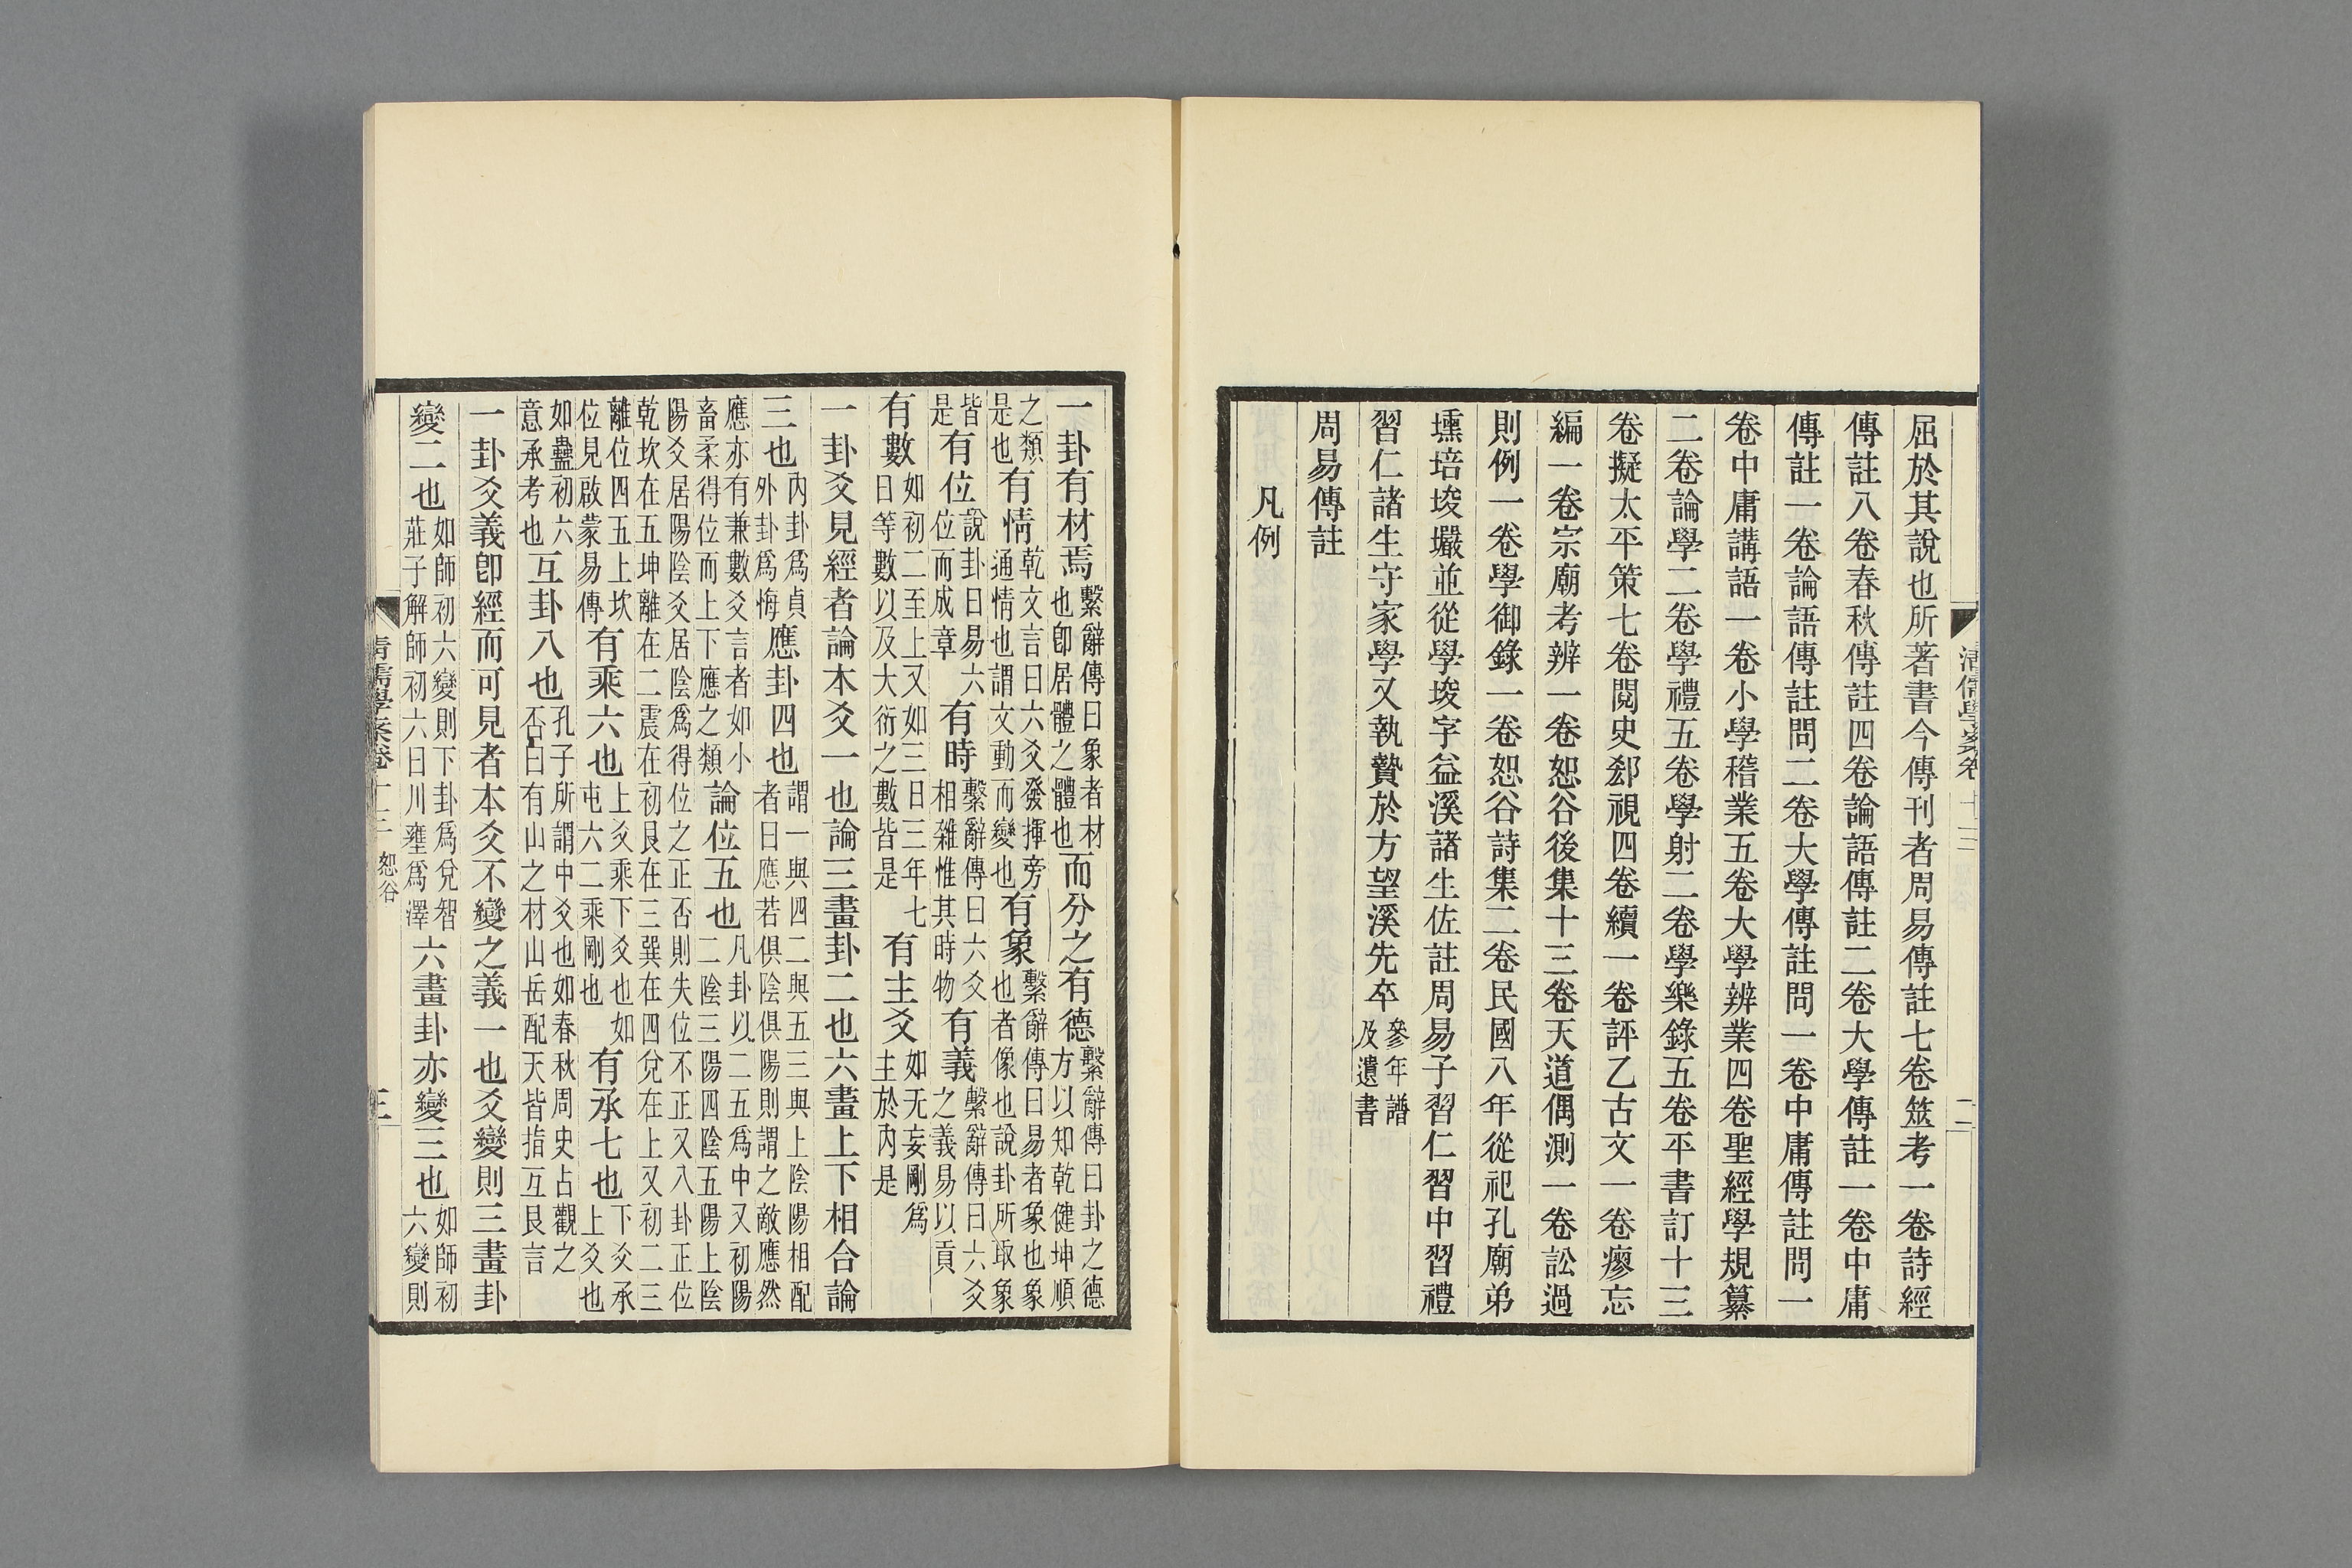 清儒學案卷十三
二
屈於其說也所著書今傳刊者周易傳註七卷筮考一卷詩經
傳註八卷春秋傳註四卷論語傳註二卷大學傳註一卷中庸
傳註一卷論語傳註問二卷大學傳註問一卷中庸傳註問一
卷中庸講語一卷小學稽業五卷大學辨業四卷聖經學規纂
二卷論學二卷學禮五卷學射二卷學樂錄五卷平書訂十三
卷擬太平策七卷閱史郄視四卷續一卷評乙古文一卷瘳忘
編一卷宗廟考辨一卷恕谷後集十三卷天道偶測一卷訟過
則例一卷學御錄一卷恕谷詩集二卷民國八年從祀孔廟弟
壎培埈㘙並從學埈字益溪諸生佐註周易子習仁習中習禮
習仁諸生守家學又執贄於方望溪先卒參年譜及遺書
周易傳註
凡例
一卦有材焉繫辭傳曰彖者材也卽居體之體也而分之有德繫辭傳曰卦之德方以知乾健坤順
之類是也有情乾文言曰六爻發揮旁通情也謂文動而變也有象繫辭傳曰易者象也象也者像也說卦所取象
皆是有位說卦曰易六位而成章有時繫辭傳曰六爻相雜惟其時物有義繫辭傳曰六爻之義易以貢
有數如初二至上又如三日三年七日等數以及大衍之數皆是有主爻如无妄剛爲主於內是
一卦爻見經者論本爻一也論三畫卦二也六畫上下相合論
三也內卦爲貞外卦爲悔應卦四也謂一與四二與五三與上陰陽相配者曰應若俱陰俱陽則謂之敵應然
應亦有兼數爻言者如小畜柔得位而上下應之類論位五也凡卦以二五爲中又初陽二陰三陽四陰五陽上陰
陽爻居陽陰爻居陰爲得位之正否則失位不正又八卦正位乾坎在五坤離在二震在初艮在三巽在四兌在上又初二三
離位四五上坎位見啟蒙易傳有乘六也上爻乘下爻也如屯六二乘剛也有承七也下爻承上爻也
如蠱初六意承考也互卦八也孔子所謂中爻也如春秋周史占觀之否曰有山之材山岳配天皆指互艮言
一卦爻義卽經而可見者本爻不變之義一也爻變則三畫卦
變二也如師初六變則下卦爲兌智莊子解師初六曰川壅爲澤六畫卦亦變三也如師初六變則
清儒學案卷十三 恕谷
三